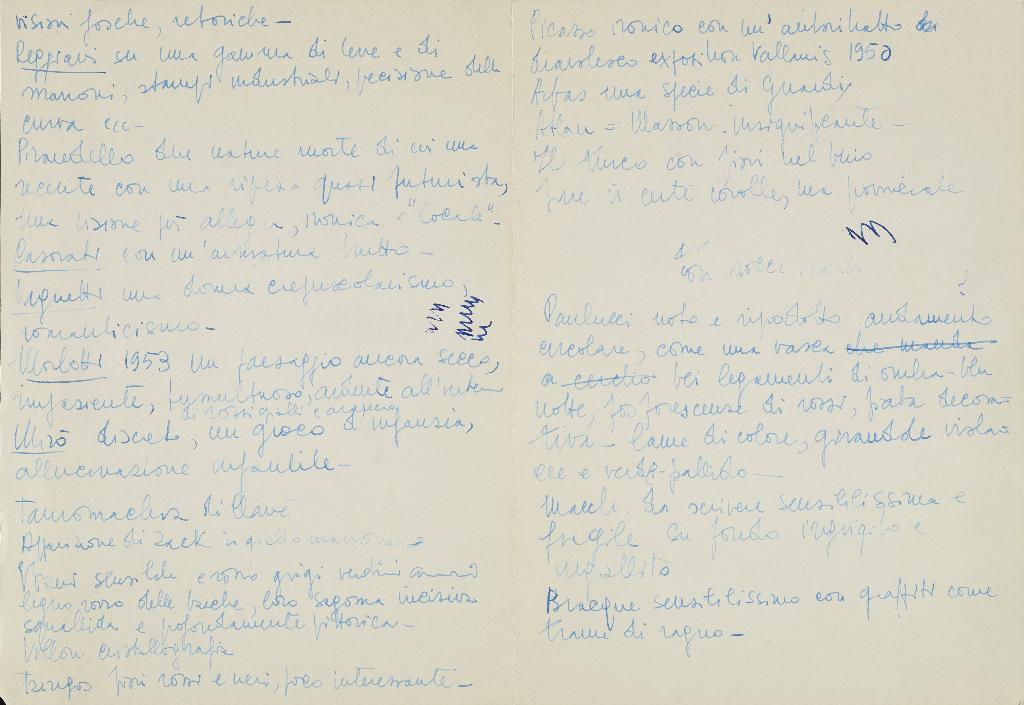 visioni fosche, retoriche –
Reggiani su una gamma di leve e di
marroni, stampi industriali, precisione della
curva ecc –
Pirandello due nature morte di cui una
recente con una ripresa quasi futurista,
una visione più allegra, ironica e "locale" –
Casorati con un'armatura brutto –
Vagnetti una donna crepuscolarismo,
romanticismo –
Morlotti 1953 un paesaggio ancora secco,
impaziente, tumultuoso, ardente all'interno
di rossi gialli e
Mirò discreto, un gioco d'infanzia,
allucinazione infantile –
Tauromachia di Clavé
Apparizione di Zack in giallo marrone
Viani sensibile e rosso grigi verdini
legno rosso delle barche, loro sagoma incisiva
squallida e profondamente pittorica –
Villon cristallografia
Tzingos fiori rossi e neri, poco interessante –
Picasso ironico con un'autoritratto
diavolesco exposition Vallauris 1950
Arbas una specie di Guardi
Atlan = Masson. insignificante –
Il turco con fiori nel buio
fine di certe corolle, ma
con
Paulucci noto e riprodotto andamento
circolare, come una vasca che manda
a cerchio bei legamenti di ombra-blu
notte, fosforescenze di rossi, pata decora-
tiva – lame di colore, girandole viola-
cee e verde-pallido –
Macch. da scrivere sensibilissima e
fragile su fondo ingrigito e
ingiallito
Braque sensibilissimo con graffiti come
trame di ragno –